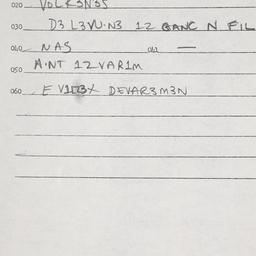 020 VOLK3N35
030 D3 L3VU·N3 12 GANC N FIL
040 NAS 012 —
050 A·NT 12 VAR1M
060 E DEVAR3M3N